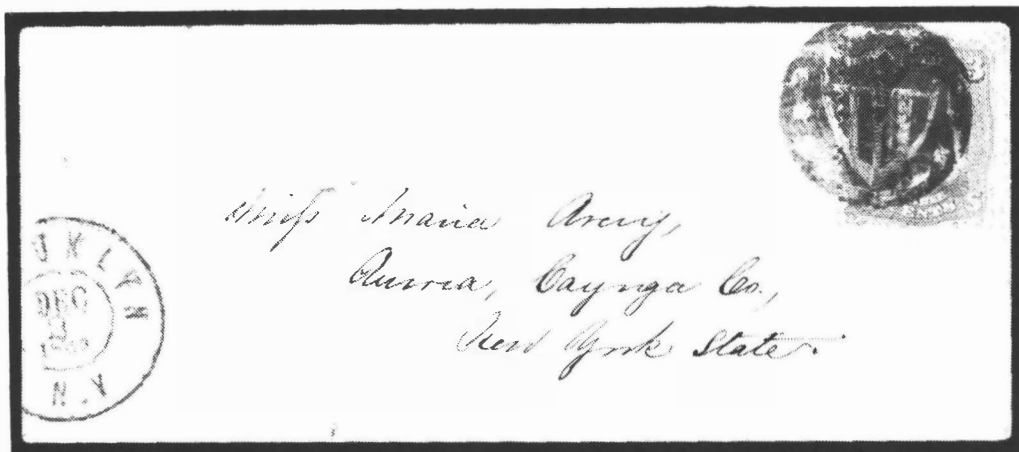 Miss Maria Avery,
Aurora, Cayuga Co.,
New York State.
OKLYN
DEC
N.Y.